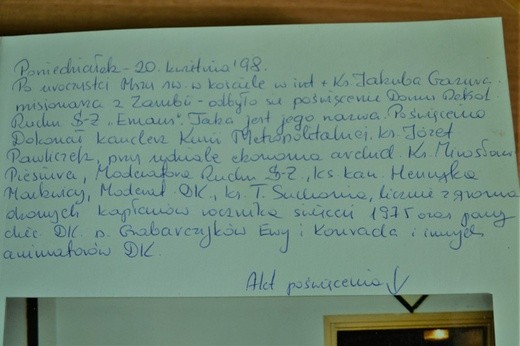 Poniedziałek - 20. kwietnia '98.
Po uroczystej Mszy św. w kościele w int. + Ks. Jakuba
misjonarza z Zambii - odbyło się poświęcenie Domu Rekol.
Ruchu Ś-Ż „Emaus". Taka jest jego nazwa. Poświęcenia
Dokonał kanclerz Kurii Metropolitalnej, ks. Józef
Pawliczek, przy udziale ekonoma archid. Ks. Mirosława
Piesiura, Moderatora Ruchu Ś-Ż, ks. kan. Henryka
Markwicy, Moderat. DK., ks. T. licznie zgroma
dzonych kapłanów rocznika święceń 1975 oraz pary
diec. DK. p. Grabarczyków Ewy i Konrada i innych
animatorów DK.
Akt poświęcenia ↓